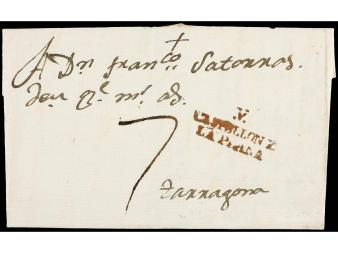 A Dn. franco. Satorras.
deu qe. ms. as.
7
V.
CASTELLON D
LA PLANA
tarragona